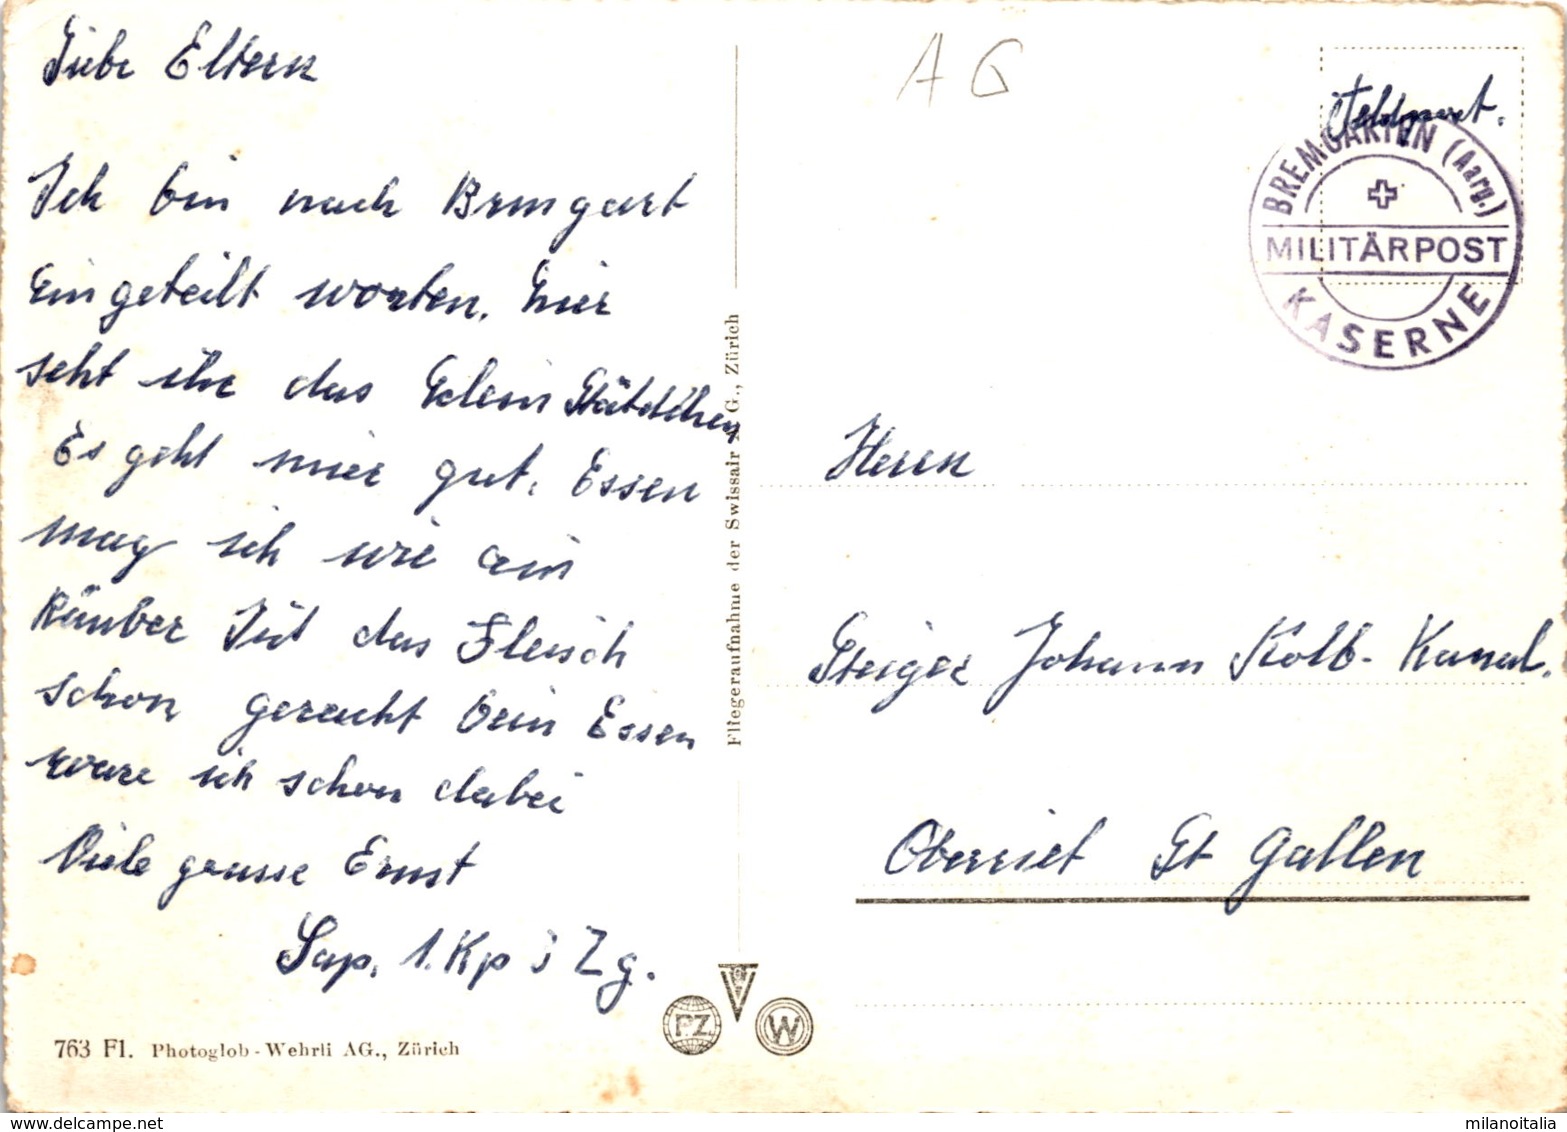 Liebe Eltern
Ich bin nach Brmgart
Eingeteilt worten. hier
seht ihr das klein Stätdchen
Es geht mier gut. Essen
mag ich wie ein
Räuber Hüt das Fleisch
schon geraucht bein Essen
ware ich schon dabei
Viele grusse Ernst
Sap. 1. Kp 3 Zg.
763 Fl. Photoglob-Wehrli AG., Zürich
Fliegeraufnahme der Swissair A.G., Zürich
PZ
W
A G
Feldpost.
BREMGARTEN (Aarg.)
MILITÄRPOST
KASERNE
Herrn
Steiger Johann Kolb-Kanal.
Oberriet St Gallen
delcampe.net
milanoitalia